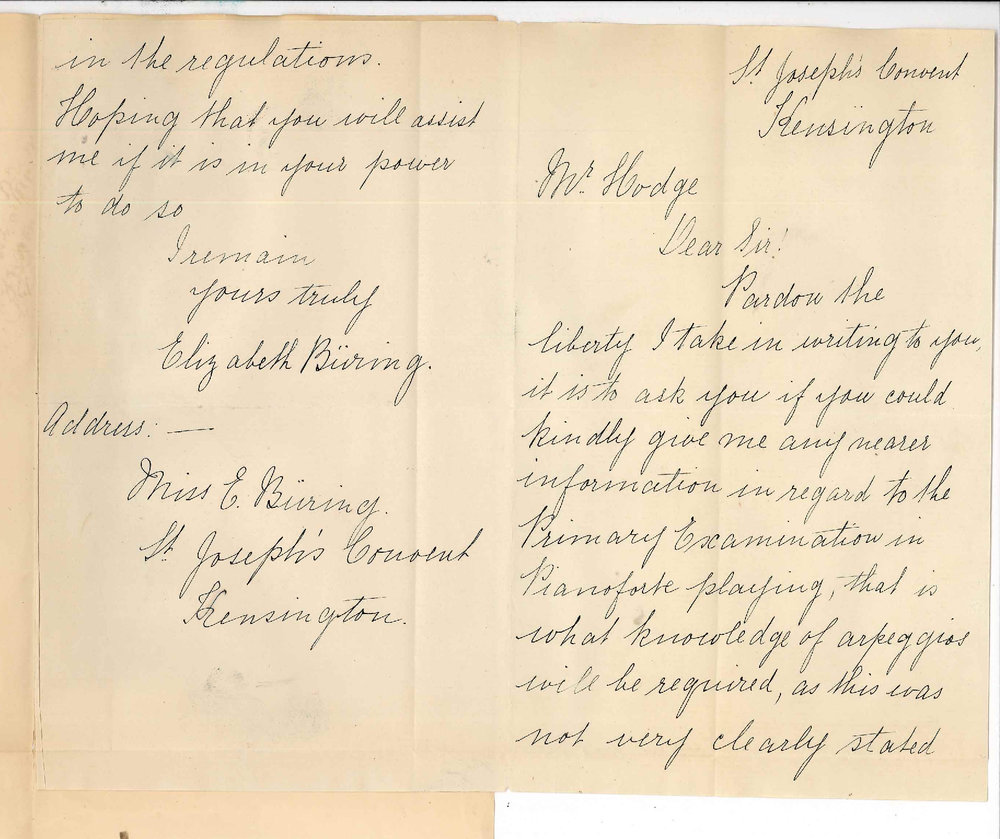 St Joseph's Convent
Kensington
Mr. Hodge
Dear Sir!
Pardon the
liberty I take in writing to you,
it is to ask you if you could
kindly give me any nearer
information in regard to the
Primary Examination in
Pianoforte playing, that is
what knowledge of arpeggios
will be required, as this was
not very clearly stated
in the regulations.
Hoping that you will assist
me if it is in your power
to do so
I remain
yours truly
Elizabeth Büring.
Address: —
Miss E. Büring.
St Joseph's Convent
Kensington.